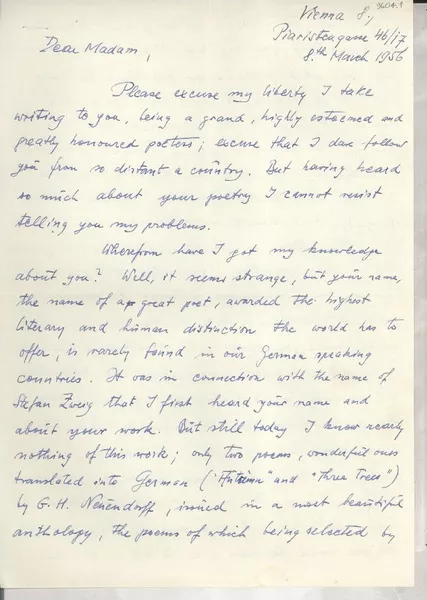 Vienna 8.,
Piaristengasse 46/17
8.th March 1956
Dear Madam,
Please excuse my liberty I take
writing to you, being a grand, highly esteemed and
greatly honoured poetess; excuse that I dare follow
you from so distant a country. But having heard
so much about your poetry I cannot resist
telling you my problems.
Wherefrom have I got my knowledge
about you? Well, it seems strange, but your name,
the name of a great poet, awarded the highest
literary and human distinction the world has to
offer, is rarely found in our German speaking
countries. It was in connection with the name of
Stefan Zweig that I first heard your name and
about your work. But still today I know nearly
nothing of this work; only two poems, wonderful ones
translated into German ("Autumn" and "Three Trees")
by G. H. Neuendorff, issued in a most beautiful
anthology, the poems of which being selected by